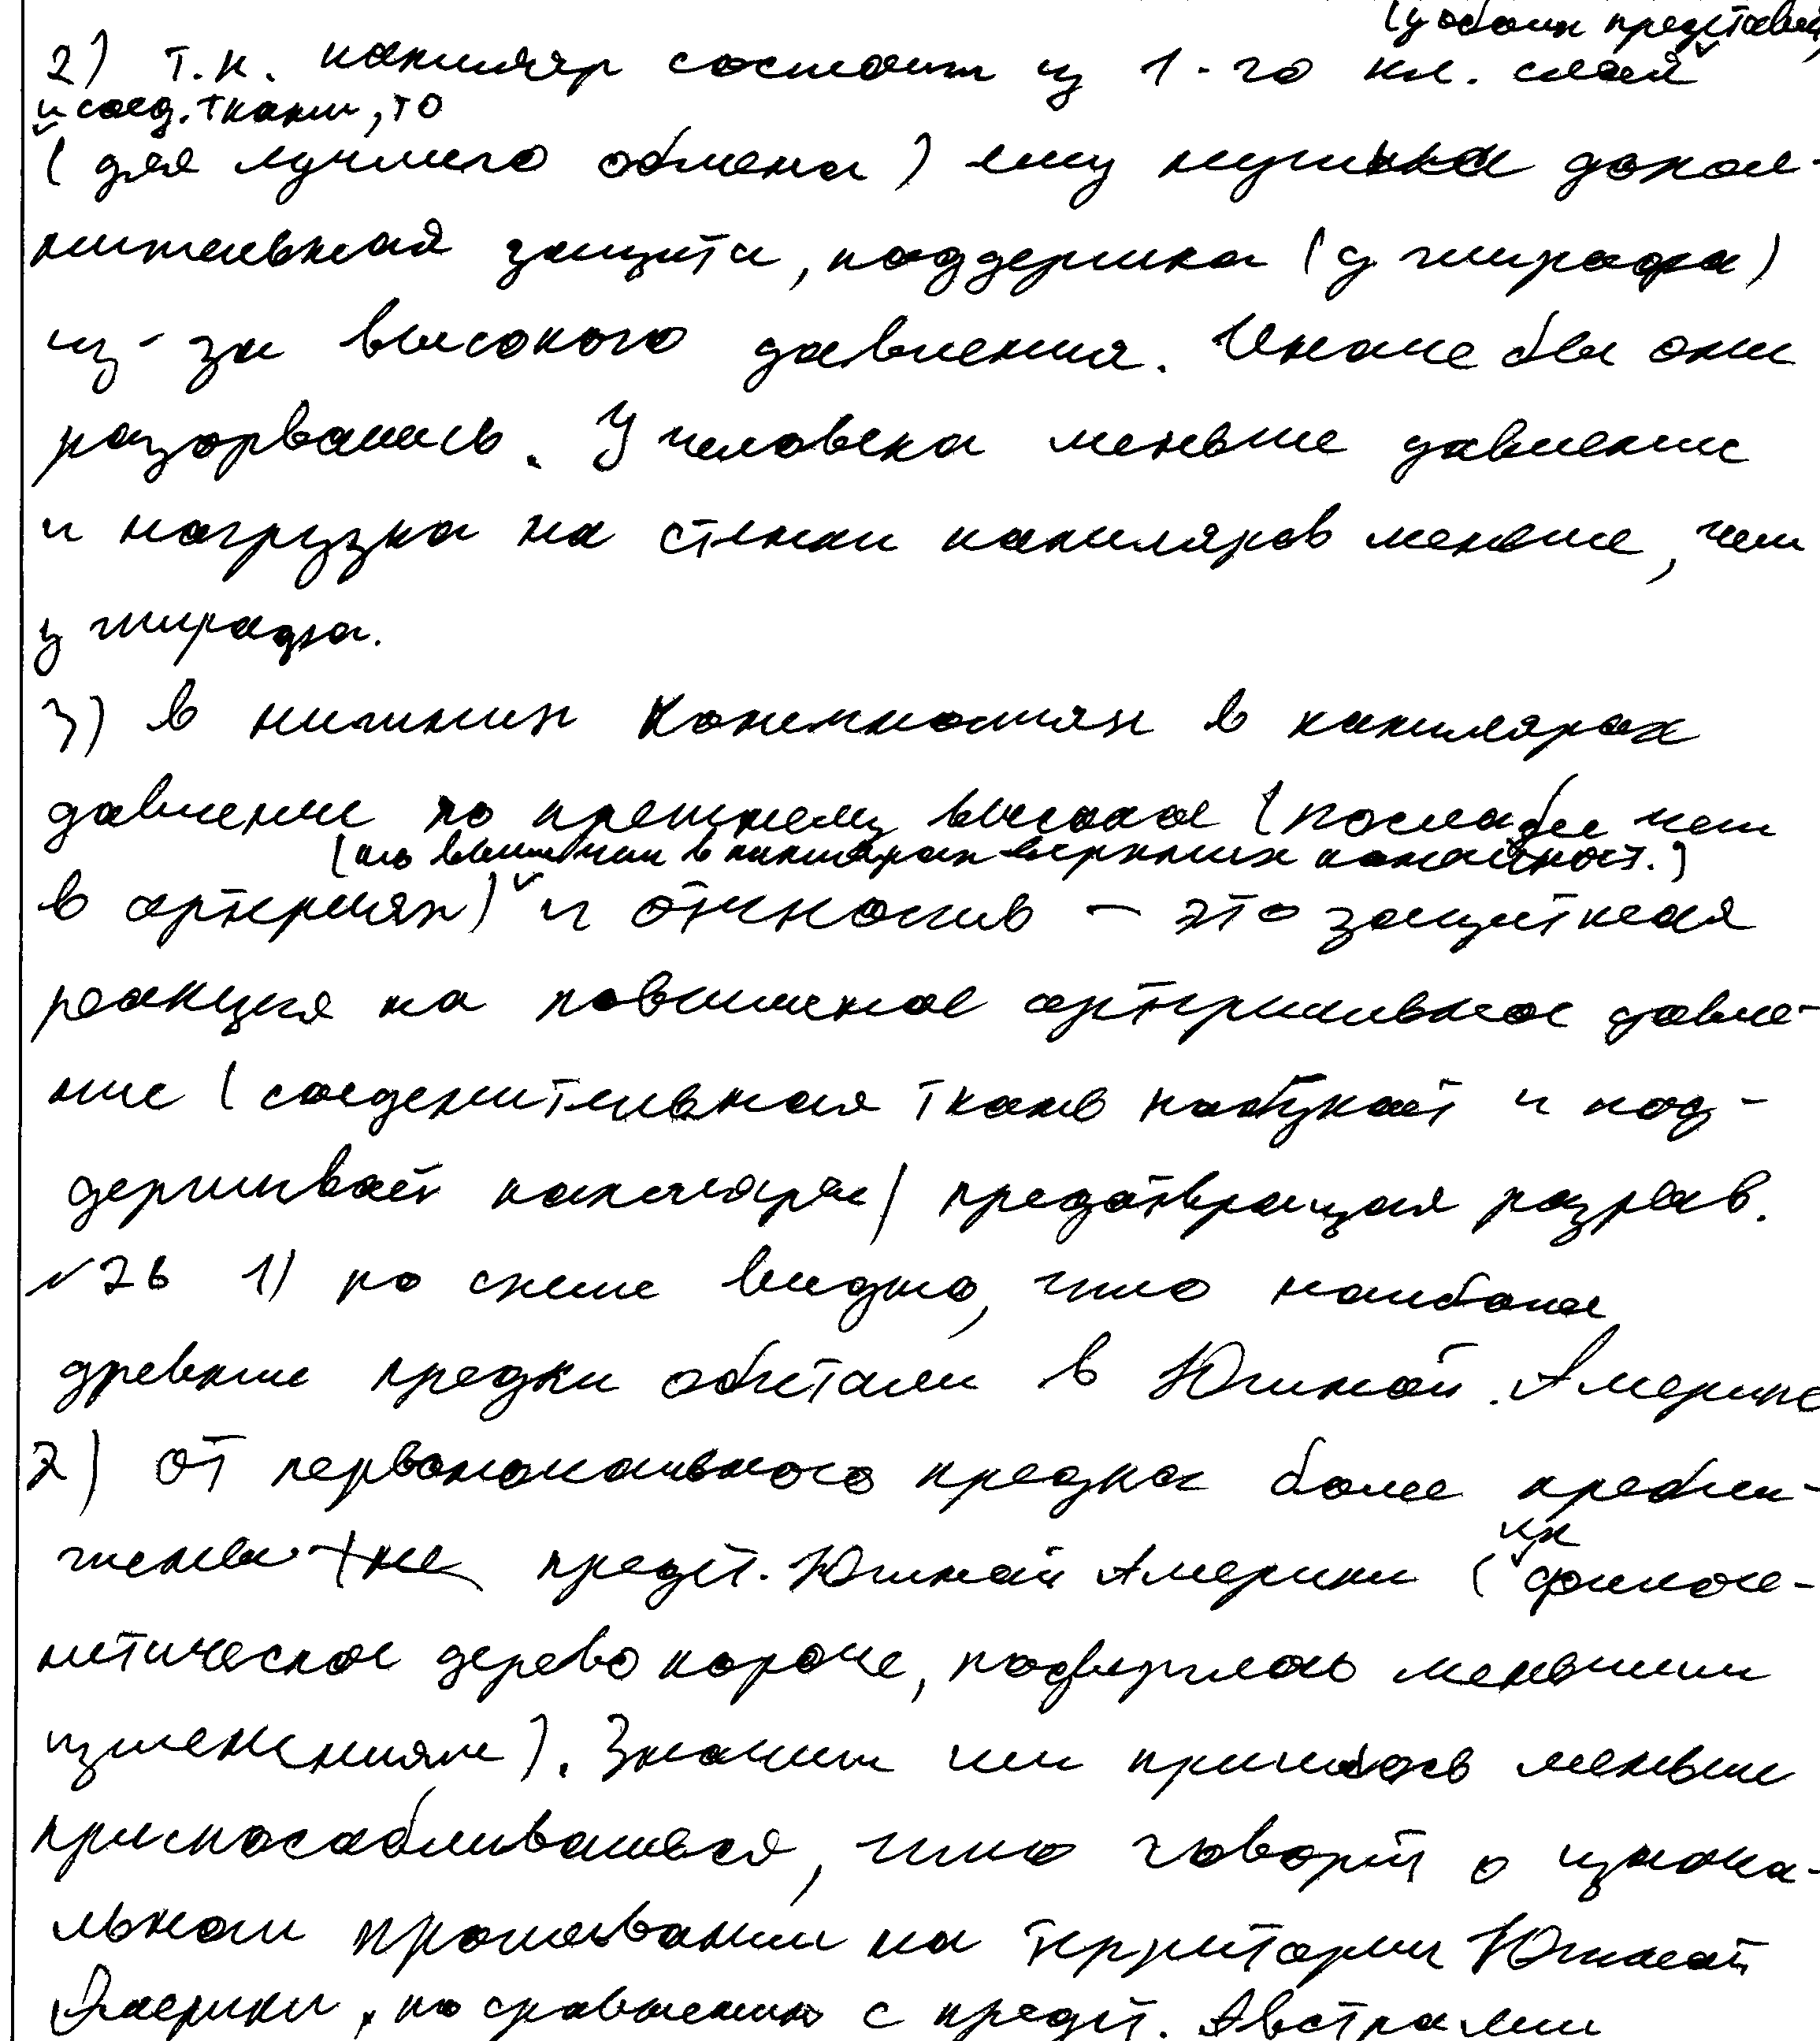 (у обоих представи
2) т.к. капиляр состоит из 1-го кл. слоя
и соед. ткани, то
(для лучшего обмена) ему нужна допол-
нительная защита, поддержка (у жирафа)
из-за высокого давления. Иначе бы они
разорвались. У человека меньше давление
и нагрузка на стенки капиляров меньше, чем
у жирафа.
3) в нижних конечностях в капилярах
давление по прежнему высокое (послабее чем
(но выше чем в капилярах верхних конечност.)
в артериях) и отечность – это защитная
реакция на повышеное артериальное давле-
ние (соеденительная ткань набухает и под-
держивает капиляры) предотвращая разрыв.
№26 1) по схеме видно, что наиболее
древние предки обитали в Южной Америке
2) от первоначального предка более прибли-
жены предст. Южной Америки (их филоге-
нетическое дерево короче, подверглось меньшим
изменениям). Значит им пришлось меньше
приспосабливаться, что говорит о изнача-
льном проживании на территории Южной
Америки, по сравнению с предст. Австралии